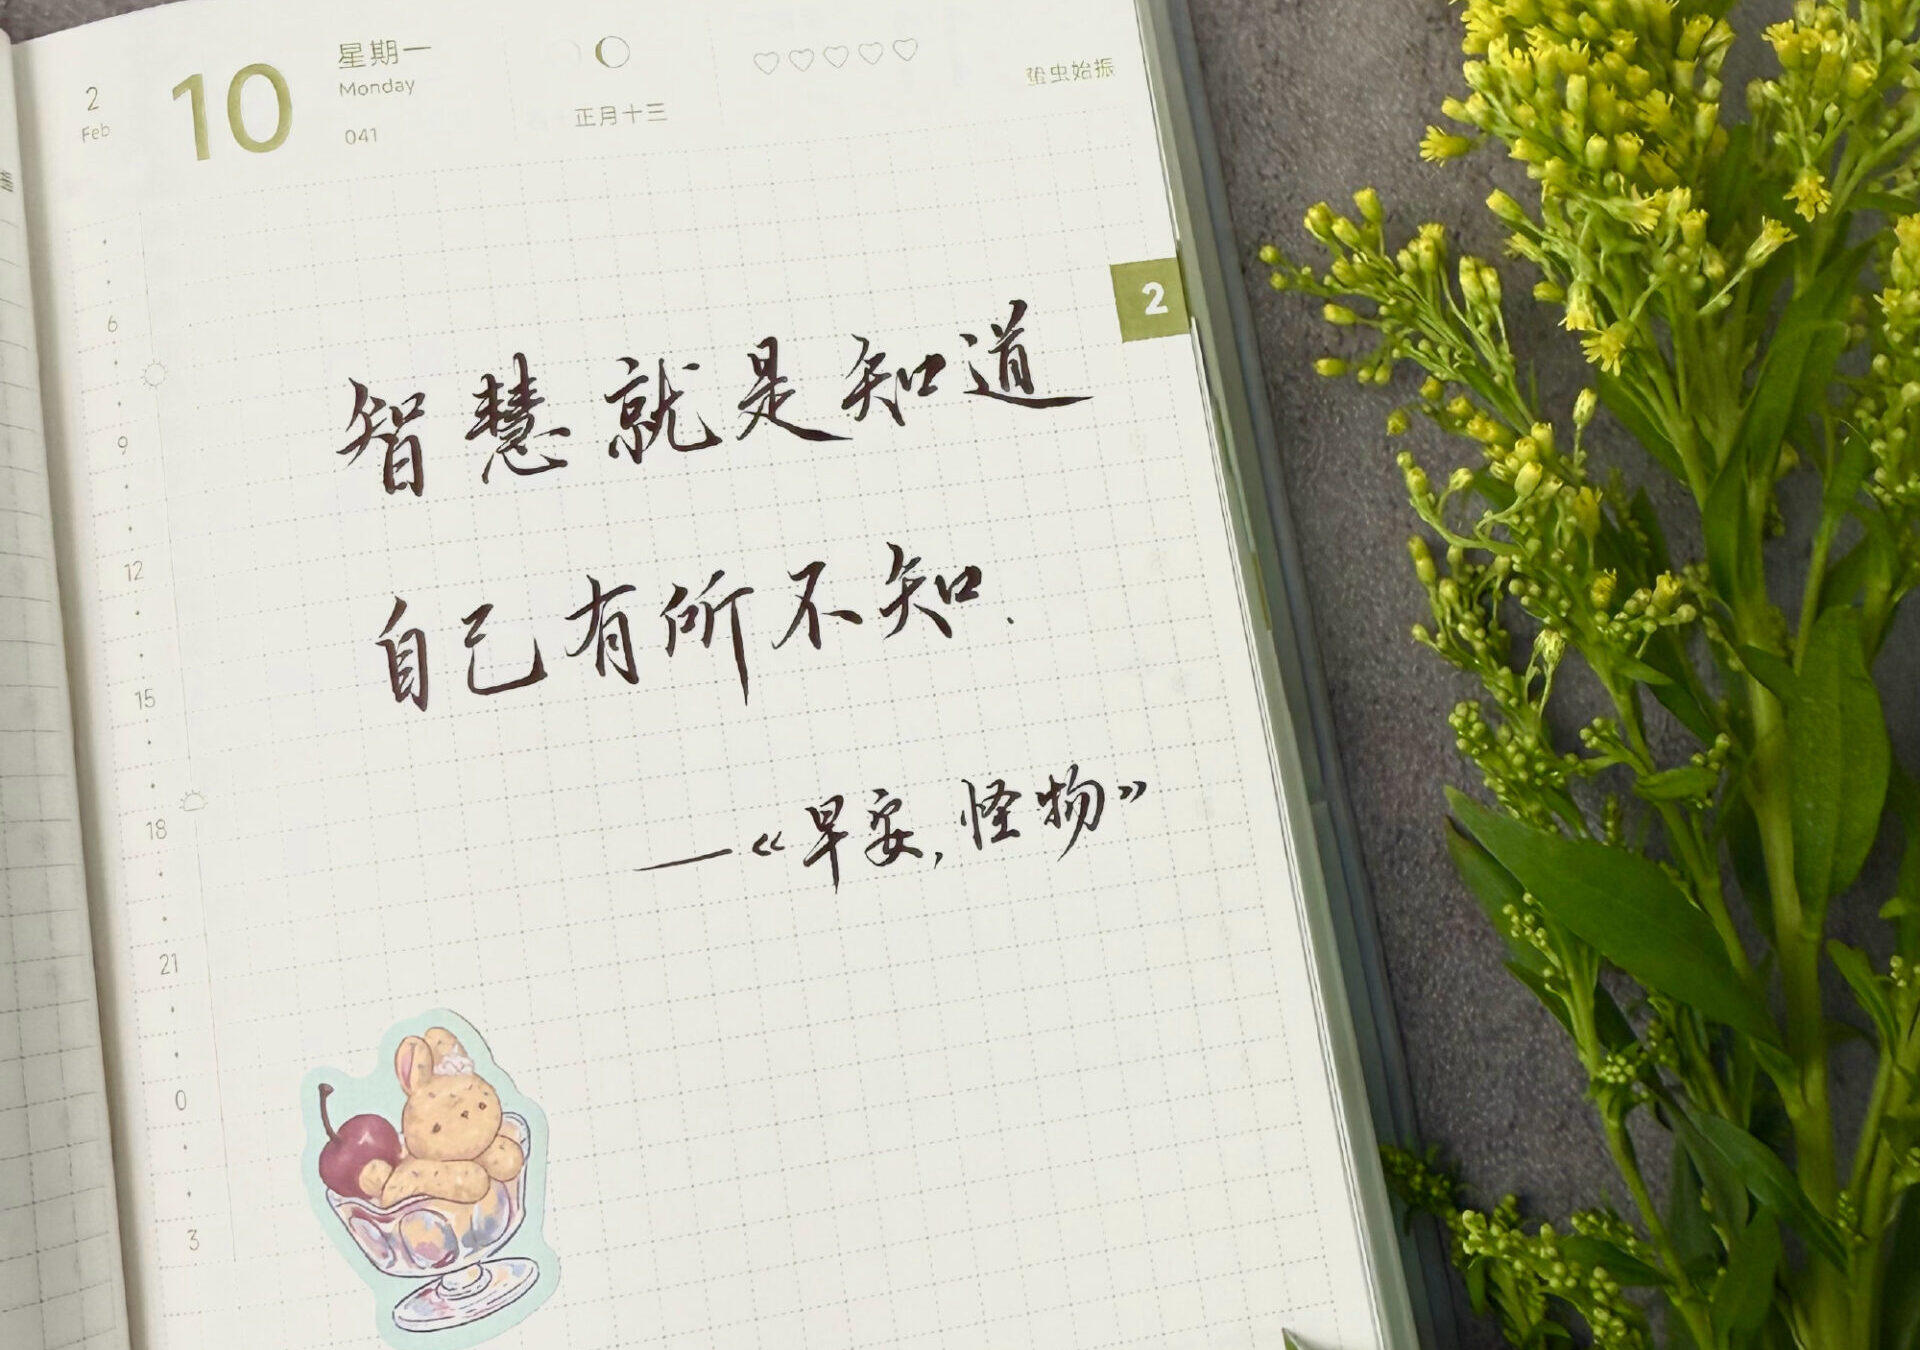 2
Feb
10
星期一
Monday
041
正月十三
蛰虫始振
2
智慧就是知道
自己有所不知.
—《早安,怪物》
6
9
12
15
18
21
0
3